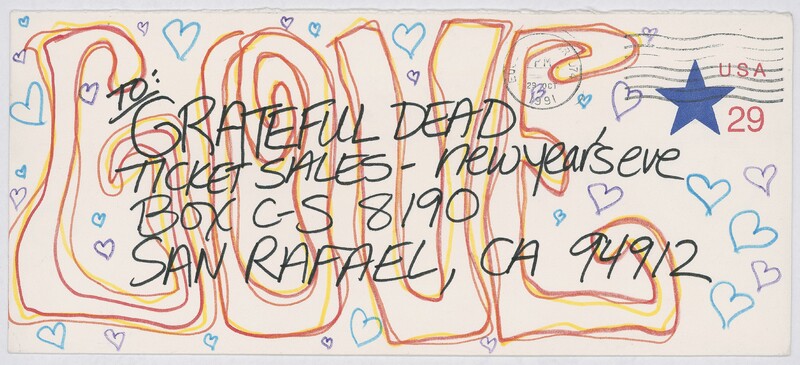 LOVE
TO:
GRATEFUL DEAD
TICKET SALES - new year's eve
BOX C-S 8190
SAN RAFAEL, CA 94912
PM
1991
USA
29